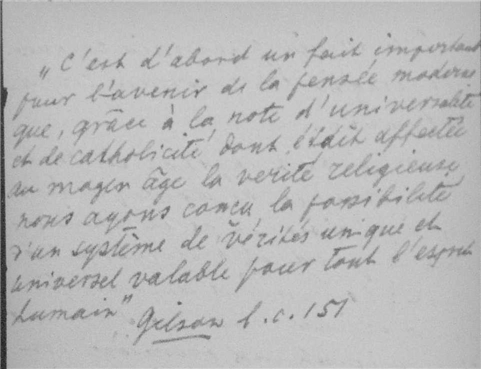 „C'est d'abord un fait important
pour l'avenir de la pensée moderne
que, grâce à la note d'universalité
et de catholicité dont était affectée
au moyen âge la vérité religieuse,
nous ayons conçu la possibilité
d'un système de vérités unique et
universel valable pour tout l'esprit
humain"
Gilson l.c. 151